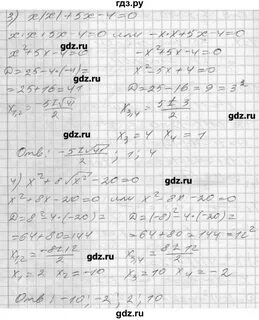 гдз.ру
3) x|x|+5x-4=0
x·x+5x-4=0 или -x·x+5x-4=0
x²+5x-4=0 -x²+5x-4=0
D=25-4·(-4)= x²-5x+4=0
=25+16=41 D=25-16=9=3²
x₁,₂ = (-5±√41)/2 x₃,₄ = (5±3)/2
x₃=4 x₄=1
Отв: (-5±√41)/2; 1; 4
4) x²+8√x²-20=0
x²+8x-20=0 или x²-8x-20=0
D=8²-4·(-20)= D=(-8)²-4·(-20)=
=64+80=144 =64+80=144=12²
x₁,₂ = (-8±12)/2 x₃,₄ = (8±12)/2
x₁=2 x₂=-10 x₃=10 x₄=-2
Отв: -10; -2; 2; 10
гдз.ру